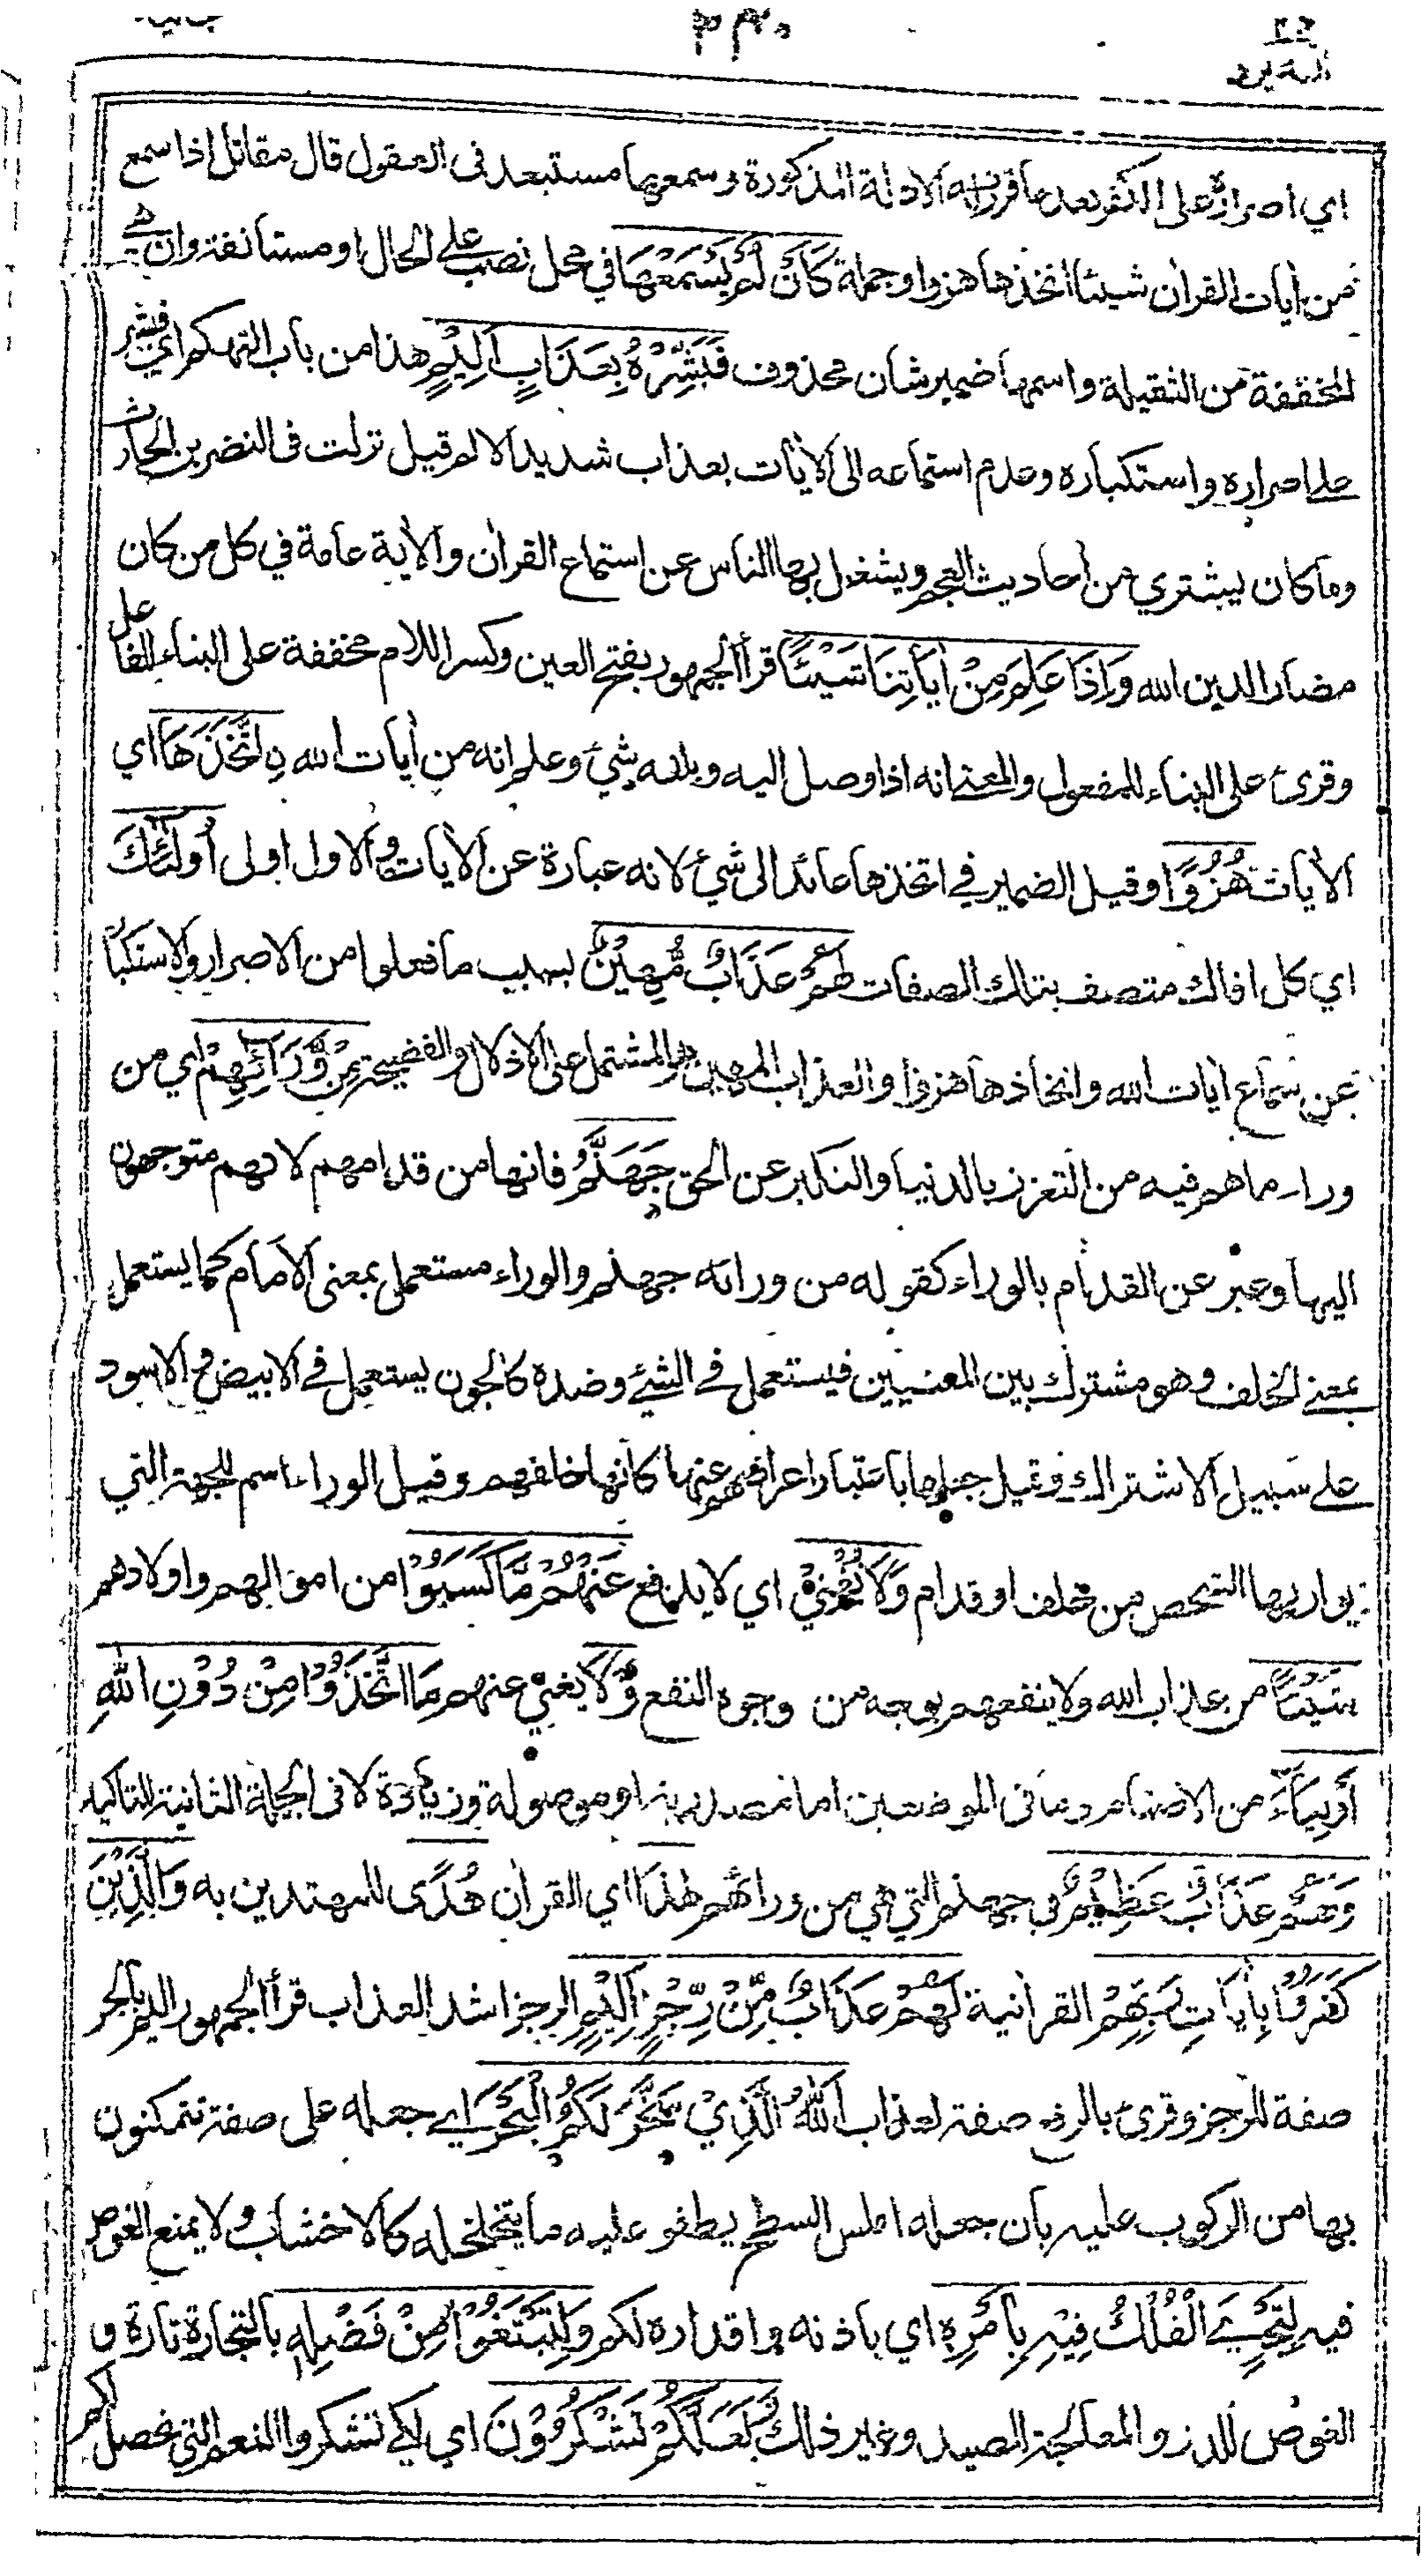 اي اصراره على الكفر بعد ما قررت له الادلة المذكورة وسمعها مستبعد في العقول قال مقاتل اذا سمع
من أيات القرأن شيئا اتخذها هزوا وجملة كَأَنْ لَّمْ يَسْمَعْهَا في محل نصب على الحال او مستأنفة وان هي
المخففة من الثقيلة واسمها ضمير شان محذوف فَبَشِّرْهُ بِعَذَابٍ اَلِيْمٍ هذا من باب التهكم اي فبشره
على اصراره واستكباره وعدم استماعه الى الأيات بعذاب شديد الالم قيل نزلت في النضر بن الحارث
وما كان يشتري من احاديث العجم ويشغل بها الناس عن استماع القرأن والأية عامة في كل من كان
مضارا لدين الله وَاِذَا عَلِمَ مِنْ اٰيَاتِنَا شَيْئًا قرأ الجمهور بفتح العين وكسر اللام مخففة على البناء للفاعل
وقرئ على البناء للمفعول والمعنى انه اذا وصل اليه وبلغه شيء وعلم انه من أيات الله اتَّخَذَهَا اي
الأيات هُزُوًا وقيل الضمير في اتخذها عائد الى شيء لانه عبارة عن الأيات والاول اولى اُولٰئِكَ
اي كل افاك متصف بتلك الصفات لَهُمْ عَذَابٌ مُّهِيْنٌ بسبب ما فعلوا من الاصرار والاستكبار
عن سماع أيات الله واتخاذها هزوا والعذاب المهين هو المشتمل على الاذلال والفضيحة مِنْ وَّرَائِهِمْ اي من
وراء ما هم فيه من التعزز بالدنيا والتكبر عن الحق جَهَنَّمُ فانها من قدامهم لانهم متوجهون
اليها وعبر عن القدام بالوراء كقوله من ورائه جهنم والوراء مستعمل بمعنى الامام كما يستعمل
بمعنى الخلف وهو مشترك بين المعنيين فيستعمل في الشيء وضده كالجون يستعمل في الابيض والاسود
على سبيل الاشتراك وقيل جعلها باعتبار اعراضهم عنها كانها خلفهم وقيل الوراء اسم للجهة التي
يواريها الشخص من خلف او قدام وَلَا يُغْنِيْ اي لا يدفع عَنْهُمْ مَّا كَسَبُوْا من اموالهم واولادهم
شَيْئًا من عذاب الله ولا ينفعهم بوجه من وجوه النفع وَّلَا يغني عنهم مَا اتَّخَذُوْا مِنْ دُوْنِ اللهِ
اَوْلِيَاءَ من الاصنام وما في الموضعين اما مصدرية او موصولة وزيادة لا في الجملة الثانية للتاكيد
وَلَهُمْ عَذَابٌ عَظِيْمٌ في جهنم التي هي من ورائهم هٰذَا اي القرأن هُدًى للمهتدين به وَالَّذِيْنَ
كَفَرُوْا بِاٰيَاتِ رَبِّهِمْ القرأنية لَهُمْ عَذَابٌ مِّنْ رِّجْزٍ اَلِيْمٍ الرجز اشد العذاب قرأ الجمهور اليم بالجر
صفة للرجز وقرئ بالرفع صفة لعذاب اَللهُ الَّذِيْ سَخَّرَ لَكُمُ الْبَحْرَ اي جعله على صفة تتمكنون
بها من الركوب عليه بان جعله املس السطح يطفو عليه ما يتخلخله كالاخشاب ولا يمنع الغوص
فيه لِتَجْرِيَ الْفُلْكُ فِيْهِ بِاَمْرِهٖ اي باذنه واقداره لكم وَلِتَبْتَغُوْا مِنْ فَضْلِهٖ بالتجارة تارة و
الغوص للدر والمعالجة للصيد وغير ذلك وَلَعَلَّكُمْ تَشْكُرُوْنَ اي لكي تشكروا النعم التي تحصل لكم